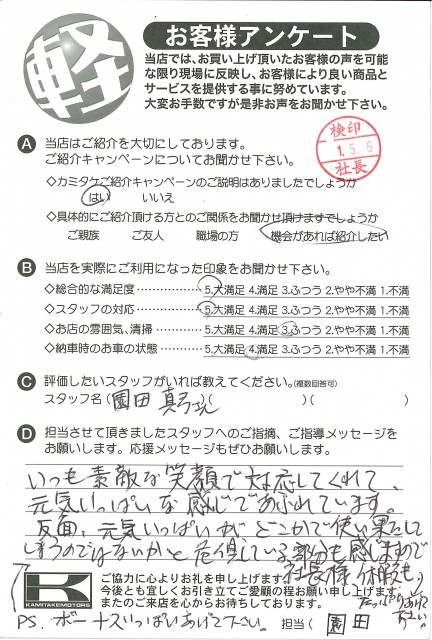 軽
お客様アンケート
当店では、お買い上げ頂いたお客様の声を可能
な限り現場に反映し、お客様により良い商品と
サービスを提供する事に努めています。
大変お手数ですが是非お声をお聞かせ下さい。
検印
1.5.6
社長
A 当店はご紹介を大切にしております。
ご紹介キャンペーンについてお聞かせ下さい。
◇カミタケご紹介キャンペーンのご説明はありましたでしょうか
はい いいえ
◇具体的にご紹介頂ける方とのご関係をお聞かせ頂けますでしょうか
ご親族 ご友人 職場の方 機会があれば紹介したい
B 当店を実際にご利用になった印象をお聞かせ下さい。
◇総合的な満足度……………5.大満足 4.満足 3.ふつう 2.やや不満 1.不満
◇スタッフの対応……………5.大満足 4.満足 3.ふつう 2.やや不満 1.不満
◇お店の雰囲気、清掃………5.大満足 4.満足 3.ふつう 2.やや不満 1.不満
◇納車時のお車の状態………5.大満足 4.満足 3.ふつう 2.やや不満 1.不満
C 評価したいスタッフがいれば教えてください。(複数回答可)
スタッフ名(園田 真弓さん)( )( )
D 担当させて頂きましたスタッフへのご指摘、ご指導メッセージを
お願いします。応援メッセージもぜひお願いします。
いつも素敵な笑顔で対応してくれて、
元気いっぱいな感じであふれています。
反面、元気いっぱいが、どこかで使い果たして
しまうのではないかと危惧している部分も感じますので
社長様、休暇も
たっぷりあげて
下さい。
K
KAMITAKEMOTORS
ご協力に心よりお礼を申し上げます。
今後とも宜しくお引き立てご愛顧の程お願い申し上げます。
またのご来店を心からお待ちしております。
PS. ボーナスいっぱいあげて下さい。 担当(園田)